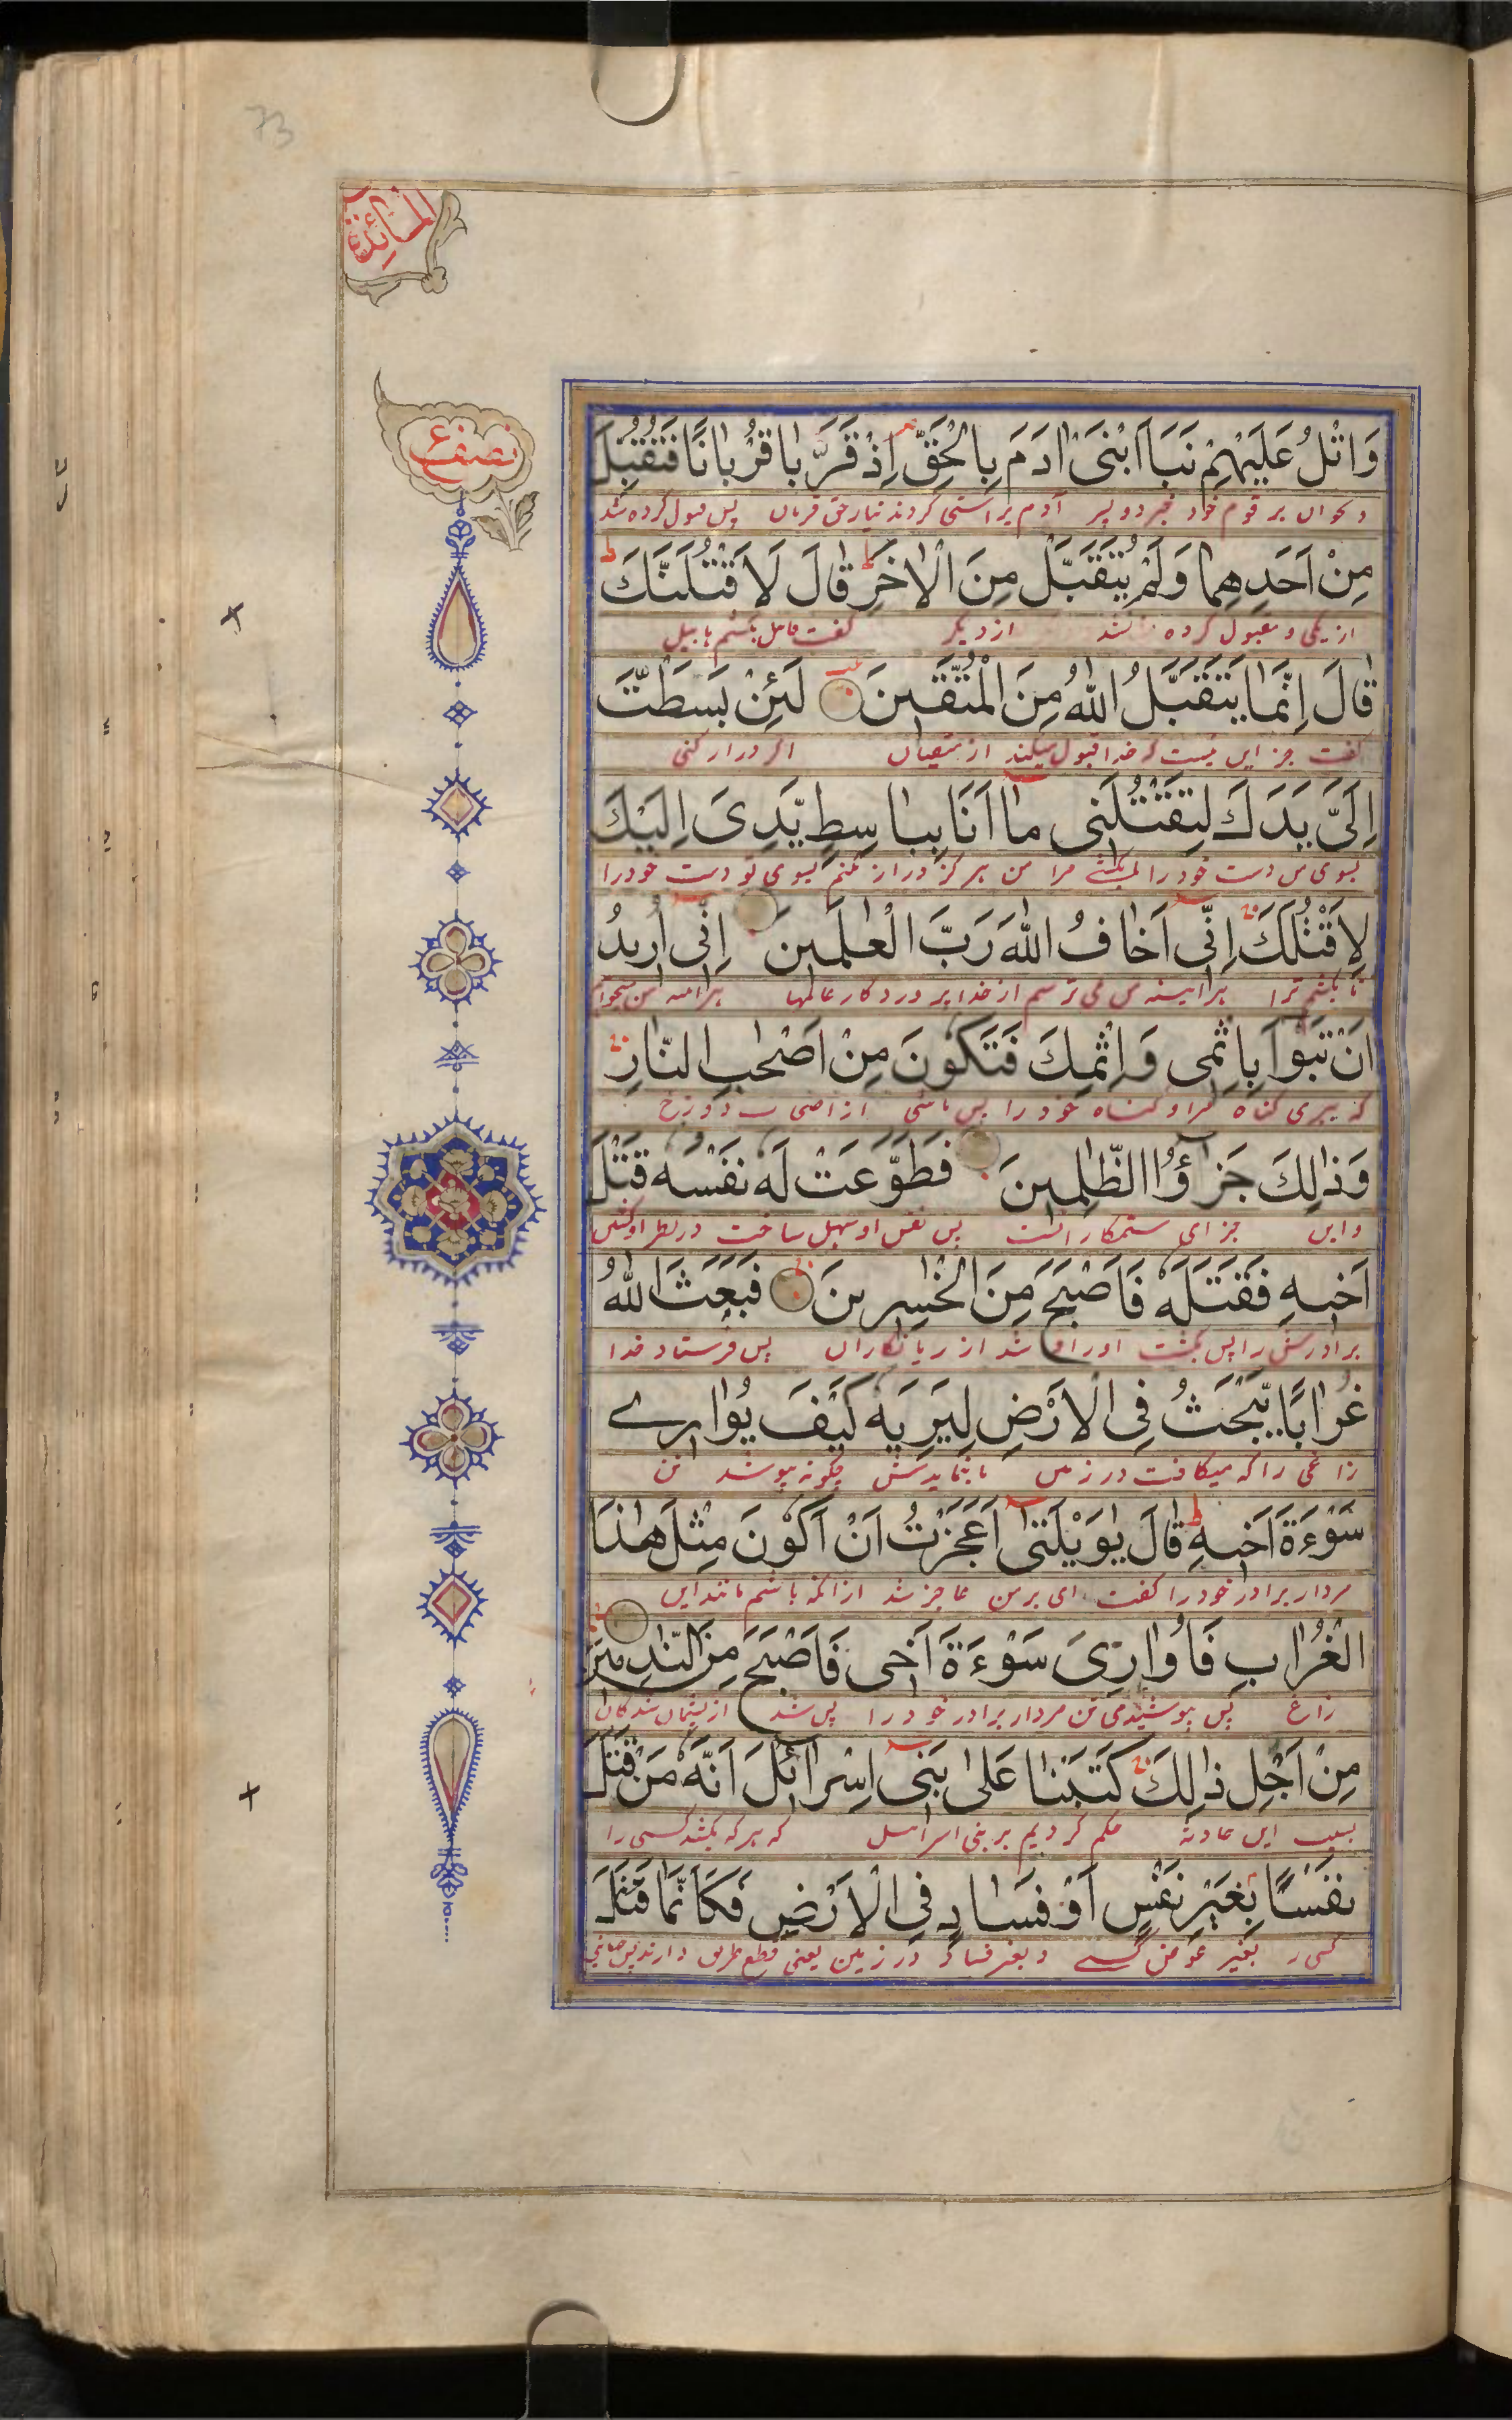 73
المائدة
نصف ع
وَاتْلُ عَلَيْهِمْ نَبَاَ ابْنَىْ اٰدَمَ بِالْحَقِّ اِذْ قَرَّبا قُرْبانًا فَتُقُبِّلَ
و بخوان بر قوم خود خبر دو پسر آدم براستی کردند نیاز حق قربان پس قبول کرده شد
مِنْ اَحَدِهِما وَلَمْ يُتَقَبَّلْ مِنَ الْاٰخَرِ قٰالَ لَاَقْتُلَنَّكَ
از یکی و مقبول کرده نشد از دیگر گفت قابل بکشم هابیل
قٰالَ اِنَّمٰا يَتَقَبَّلُ اللّٰهُ مِنَ الْمُتَّقينَ لَئِنْ بَسَطْتَّ
گفت جز این نیست که خدا قبول میکند از متقیان اگر دراز کنی
اِلَىَّ يَدَكَ لِتَقْتُلَنى مٰا اَنَا بِبٰاسِطٍ يَّدِىَ اِلَيْكَ
بسوی من دست خود را مرا من هرگز دراز نکنم بسوی تو دست خود را
لِاَقْتُلَكَ اِنّى اَخٰافُ اللّٰهَ رَبَّ الْعٰلَمينَ اِنّى اُريدُ
تا بکشم ترا هرآینه من می ترسم از خدا پروردکار عالمها هرآینه من میخواهم
اَنْ تَبُوٓاَ بِاِثْمى وَاِثْمِكَ فَتَكُونَ مِنْ اَصْحٰبِ النّٰارِ
که ببری کناه مرا و کناه خود را پس باشی از اصحاب دوزخ
وَذٰلِكَ جَزٰٓؤُا الظّٰلِمينَ فَطَوَّعَتْ لَهٗ نَفْسُهٗ قَتْلَ
و این جزای ستمکارانست پس نفس او سهل ساخت در نظر او کشتن
اَخيهِ فَقَتَلَهٗ فَاَصْبَحَ مِنَ الْخٰسِرينَ فَبَعَثَ اللّٰهُ
برادرش را پس بکشت او را شد از زیانکاران پس فرستاد خدا
غُرٰابًا يَّبْحَثُ فِى الْاَرْضِ لِيُرِيَهٗ كَيْفَ يُوٰارى
زاغی را که میکافت در زمین تا بنمایدش چگونه بپوشد تن
سَوْءَةَ اَخيهِ قٰالَ يٰوَيْلَتٰى اَعَجَزْتُ اَنْ اَكُونَ مِثْلَ هٰذَا
مردار برادر خود را گفت ای بر من عاجز شد از انکه باشم مانند این
الْغُرٰابِ فَاُوٰارِىَ سَوْءَةَ اَخى فَاَصْبَحَ مِنَ النّٰدِمينَ
زاغ پس پوشیدمی تن مردار برادر خود را پس شد از پشیمان شدکان
مِنْ اَجْلِ ذٰلِكَ كَتَبْنٰا عَلىٰ بَنى اِسْرٰٓائلَ اَنَّهٗ مَنْ قَتَلَ
بسبب این حادثه حکم کردیم بر بنی اسرائیل که هر که بکشد کسی را
نَفْسًا بِغَيْرِ نَفْسٍ اَوْ فَسٰادٍ فِى الْاَرْضِ فَكَاَنَّمٰا قَتَلَ
کسی را بغیر عوض کسی و بغیر فساد در زمین یعنی قطع طریق دارند